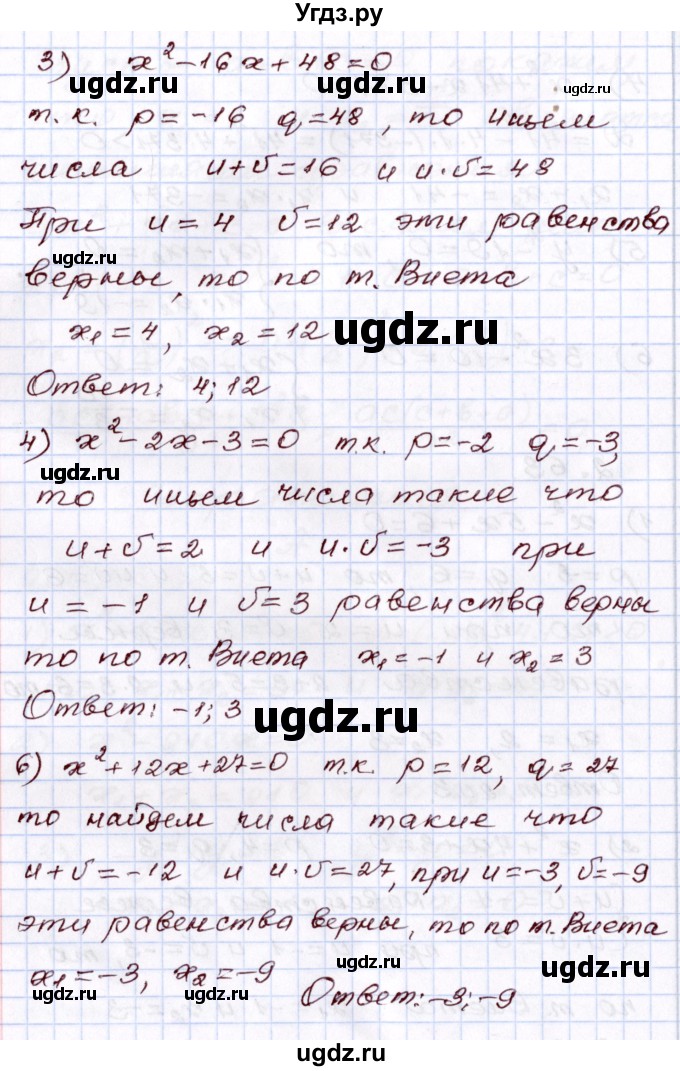 Угдз.ру
3) x² - 16x + 48 = 0
ugdz.ru ugdz.ru ugdz.ru
т.к. p = -16 q = 48, то ищем
числа u + v = 16 и u·v = 48
При u = 4 v = 12 эти равенства
ugdz.ru
верны, то по т. Виета
x₁ = 4, x₂ = 12
ugdz.ru
Ответ: 4; 12
4) x² - 2x - 3 = 0 т.к. p = -2 q = -3,
ugdz.ru
то ищем числа такие что
u + v = 2 и u·v = -3 при
u = -1 и v = 3 равенства верны
то по т. Виета x₁ = -1 и x₂ = 3
Ответ: -1; 3
ugdz.ru
ugdz.ru
6) x² + 12x + 27 = 0 т.к. p = 12, q = 27
то найдем числа такие что
u + v = -12 и u·v = 27, при u = -3, v = -9
эти равенства верны, то по т. Виета
x₁ = -3, x₂ = -9
ugdz.ru ugdz.ru ugdz.ru
Ответ: -3; -9
ugdz.ru